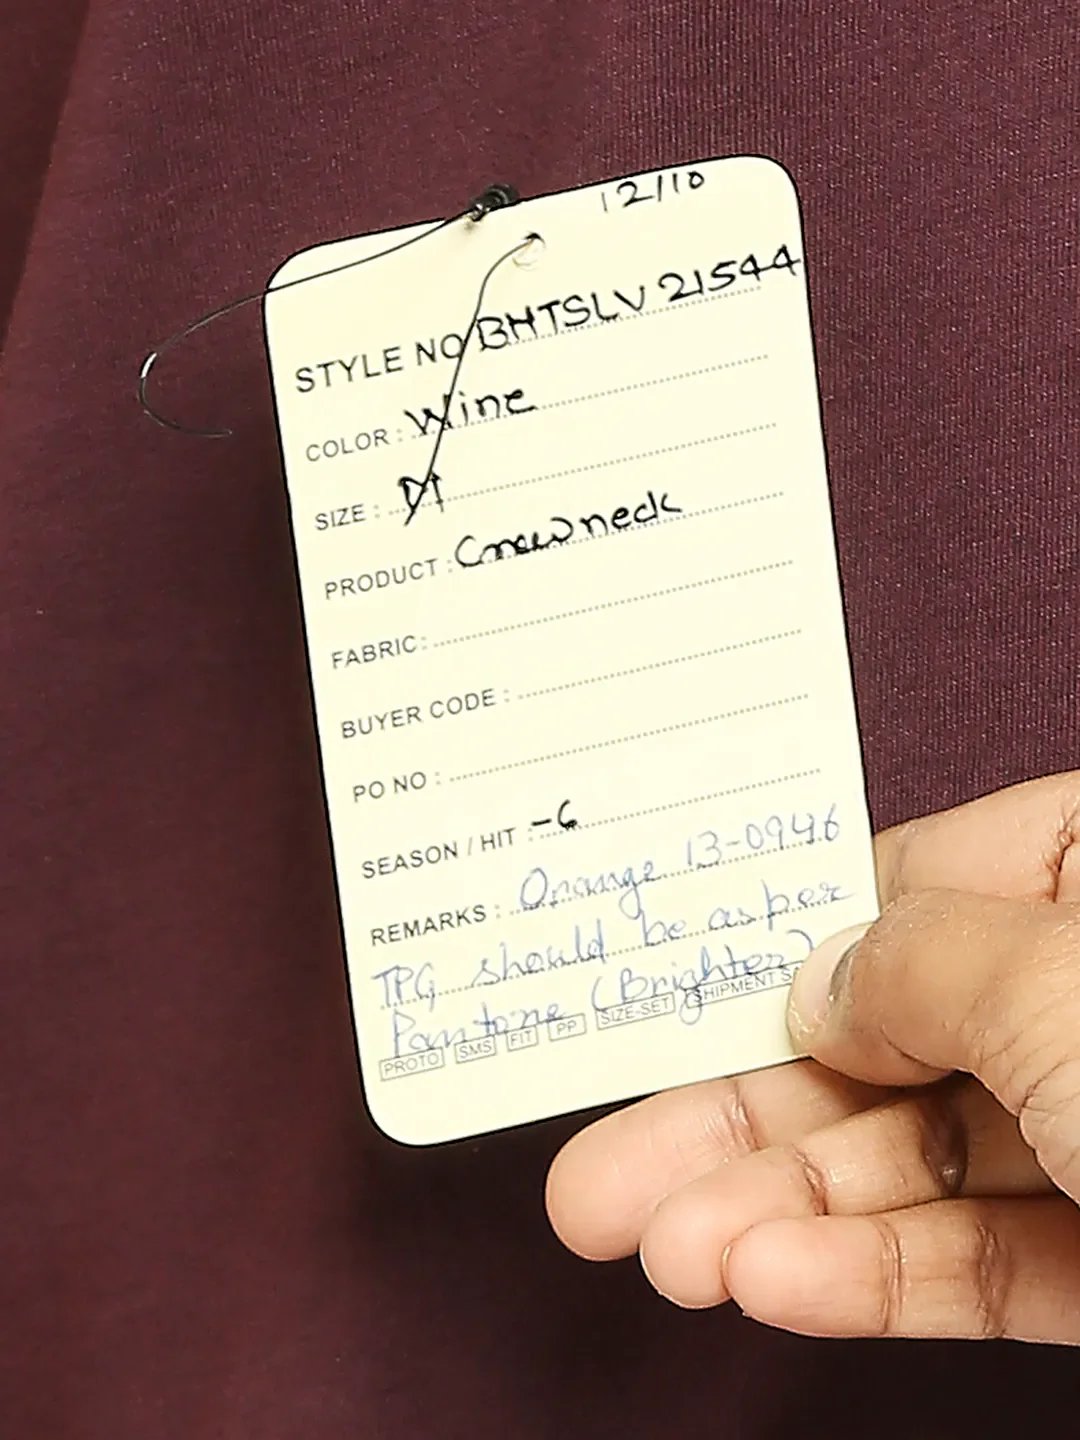 12/10
STYLE NO BHTSLV 21544
COLOR : Wine
SIZE : M
PRODUCT : Crewneck
FABRIC:
BUYER CODE :
PO NO :
SEASON / HIT : -6
REMARKS : Orange 13-0946
TPG should be as per
Pantone (Brighter)
PROTO SMS FIT PP SIZE-SET SHIPMENT